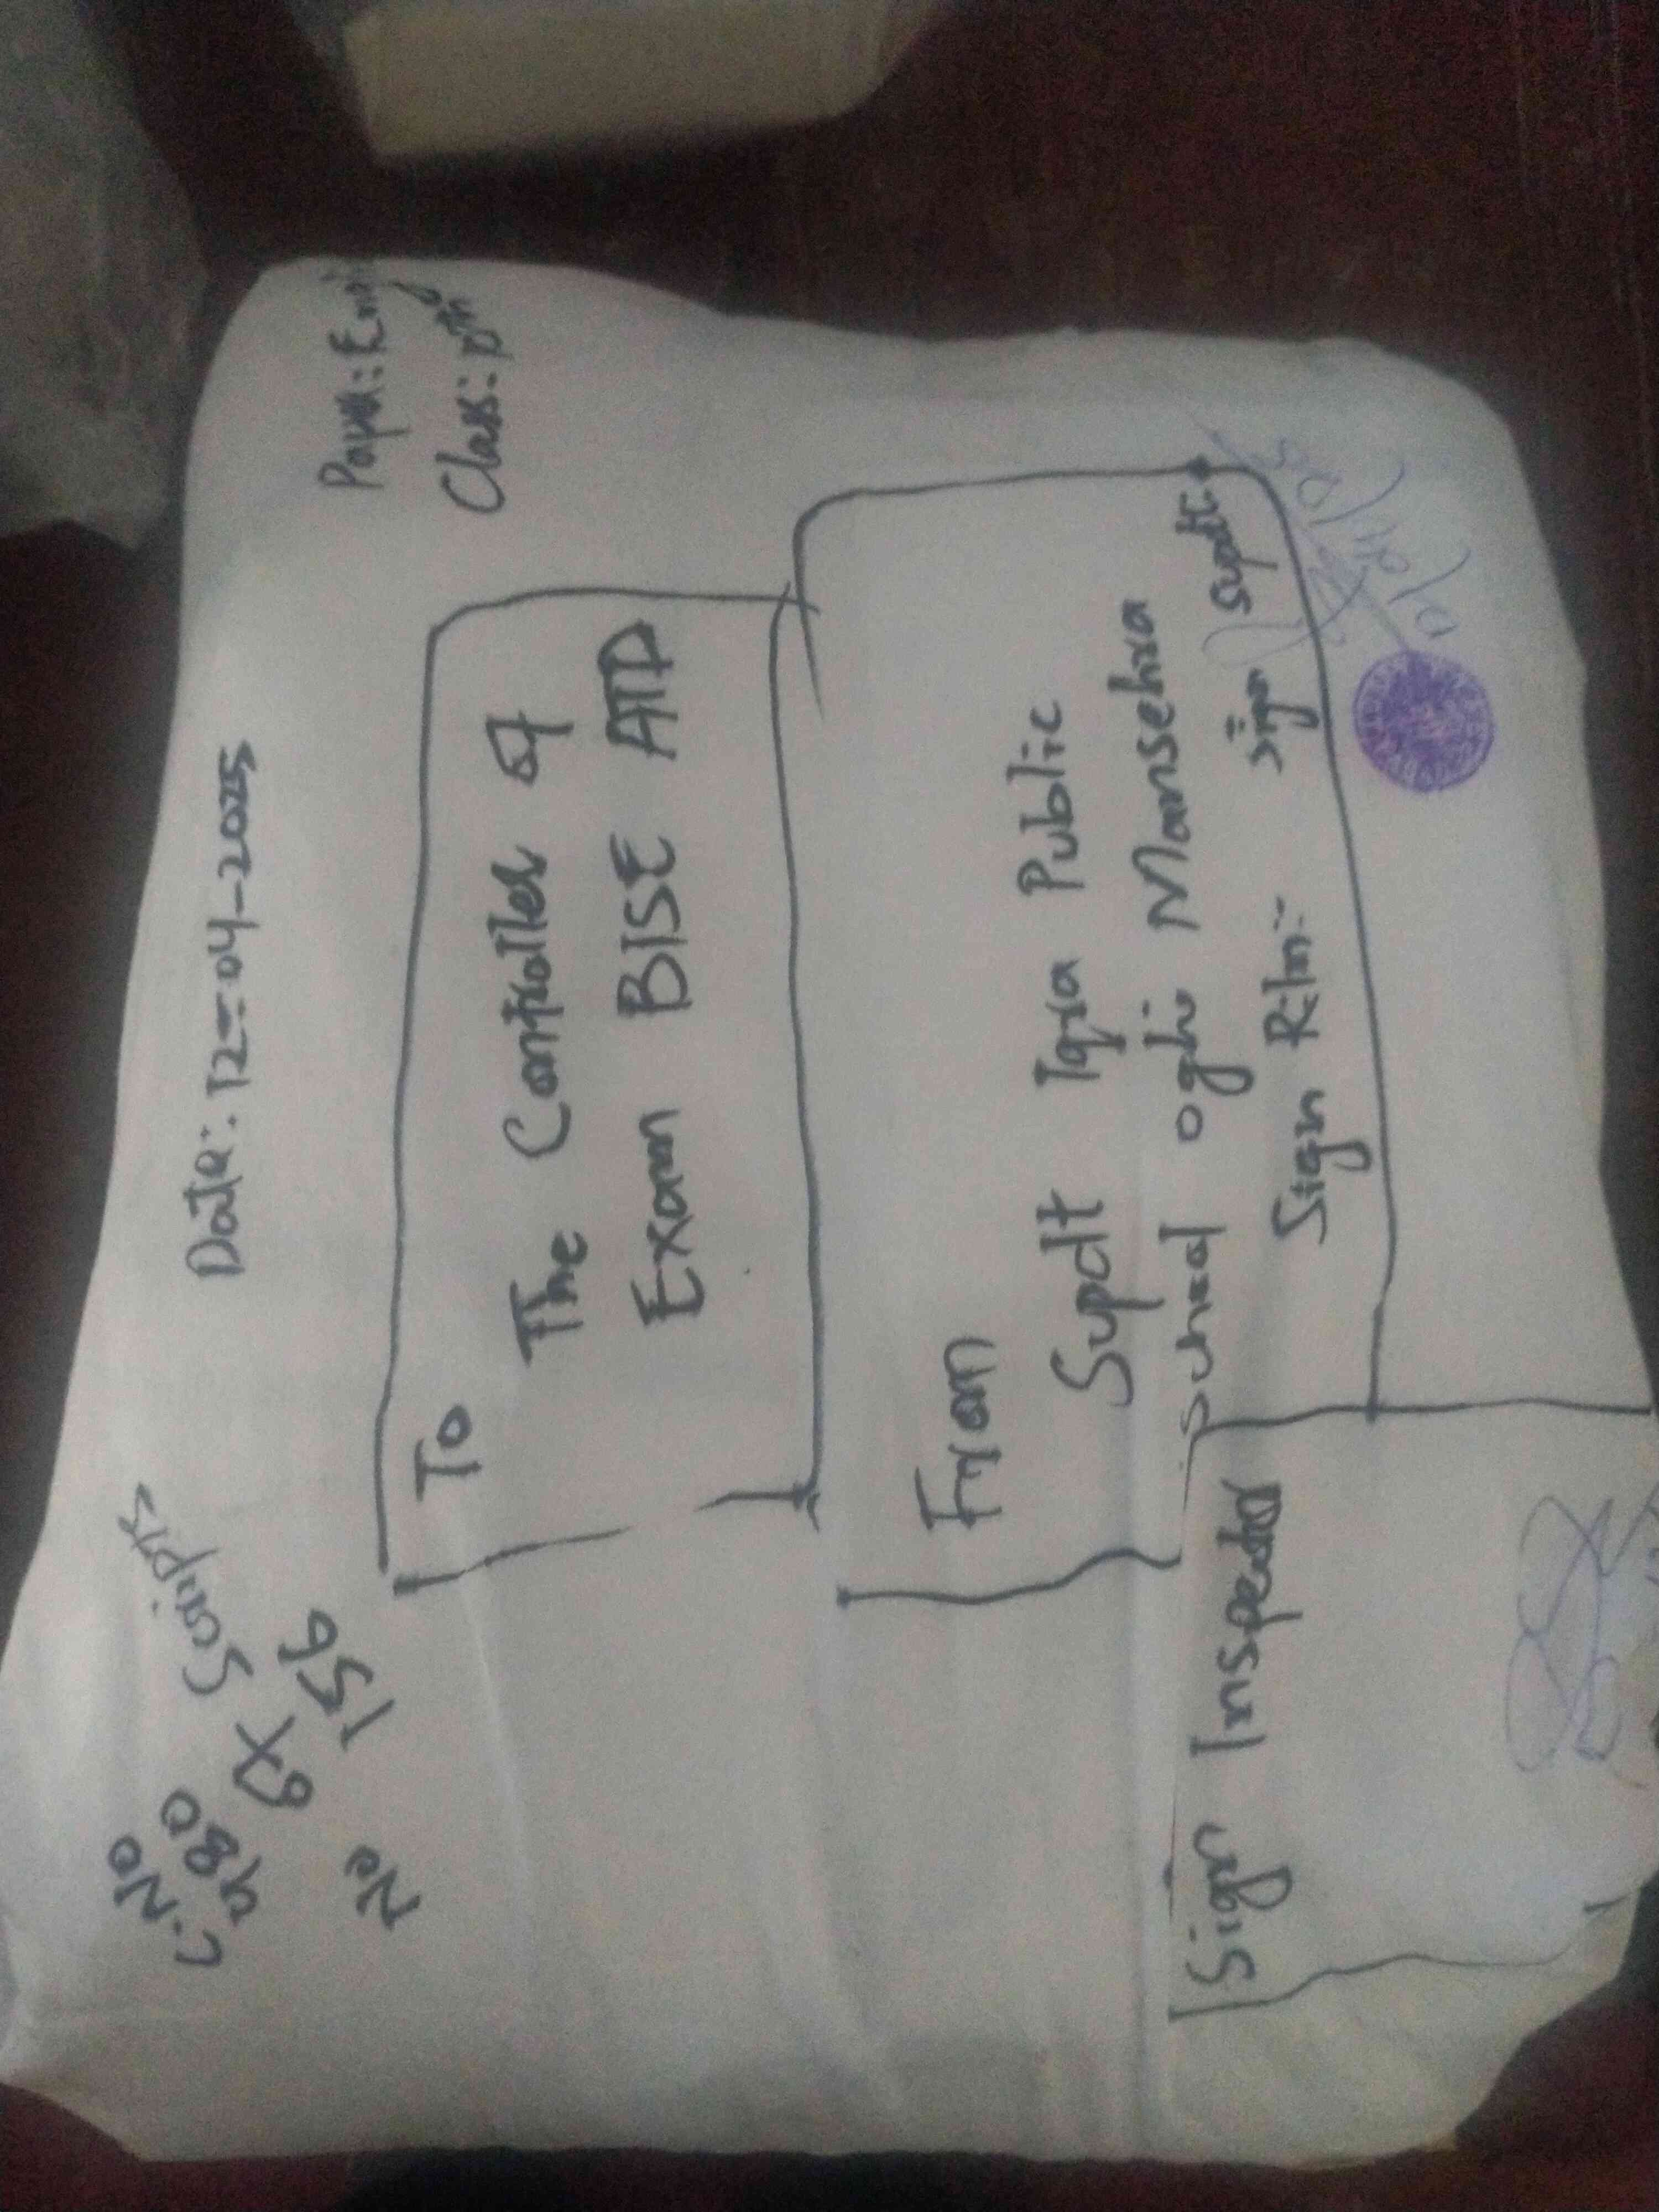 C.No
480
8x Scripts
No 156
Date:. 12-04-2025
Paper:: Eng
Class:.
To
The Contraller of
Exam BISE ATD
From
Supdt Iqra Public
School oghi Mansehra
Sign R.In:- sign Supdt:.
Sign Inspector